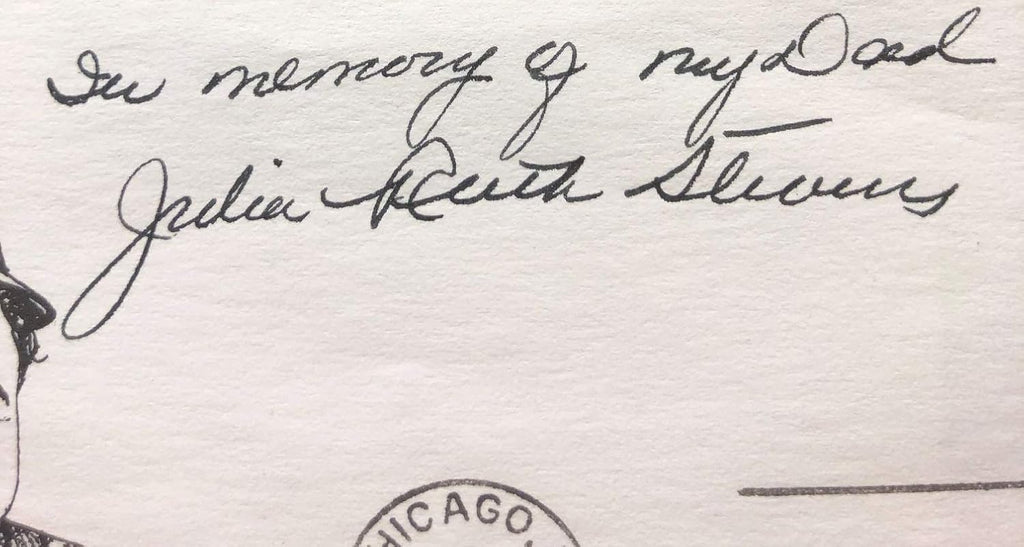 In memory of my Dad
Julia Ruth Stevens
CHICAGO,